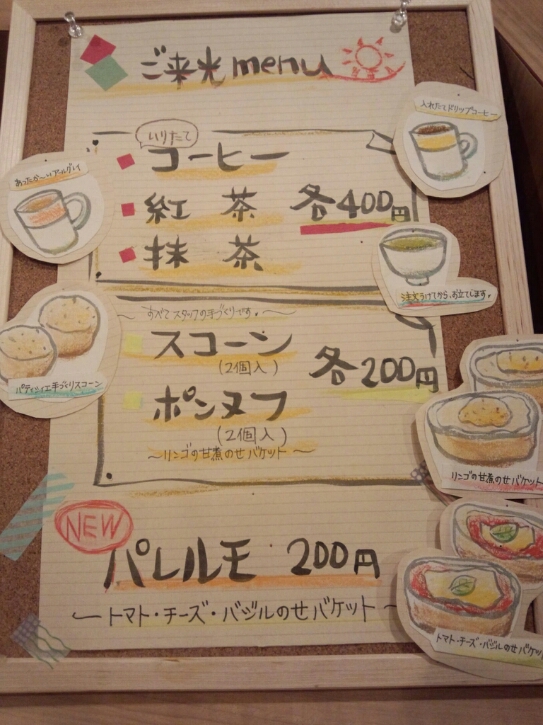 ご来光menu
いりたて
コーヒー
紅茶 各400円
抹茶
入れたてドリップコーヒー
あったか〜いアールグレイ
注文うけてから、お立てします。
〜すべてスタッフの手づくりです。〜
スコーン
(2個入)
各200円
ポンヌフ
(2個入)
〜リンゴの甘煮のせバケット〜
パティシィエ手づくりスコーン
リンゴの甘煮のせバケット
NEW
パレルモ 200円
〜トマト・チーズ・バジルのせバケット〜
トマト・チーズ・バジルのせバケット